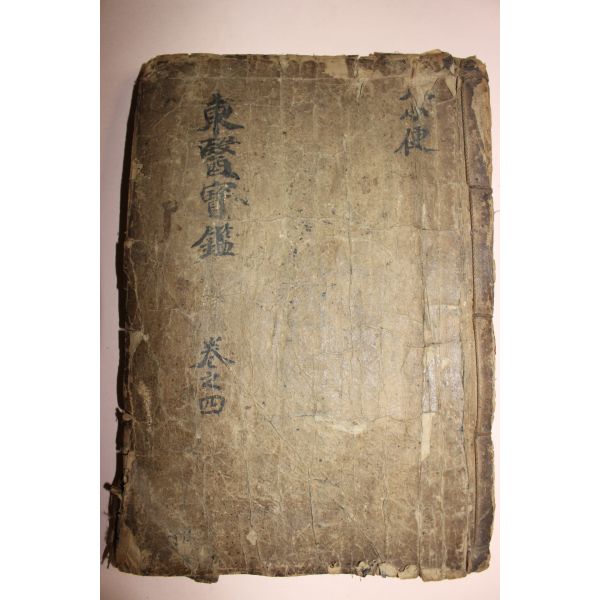 便
東醫寶鑑
卷之四